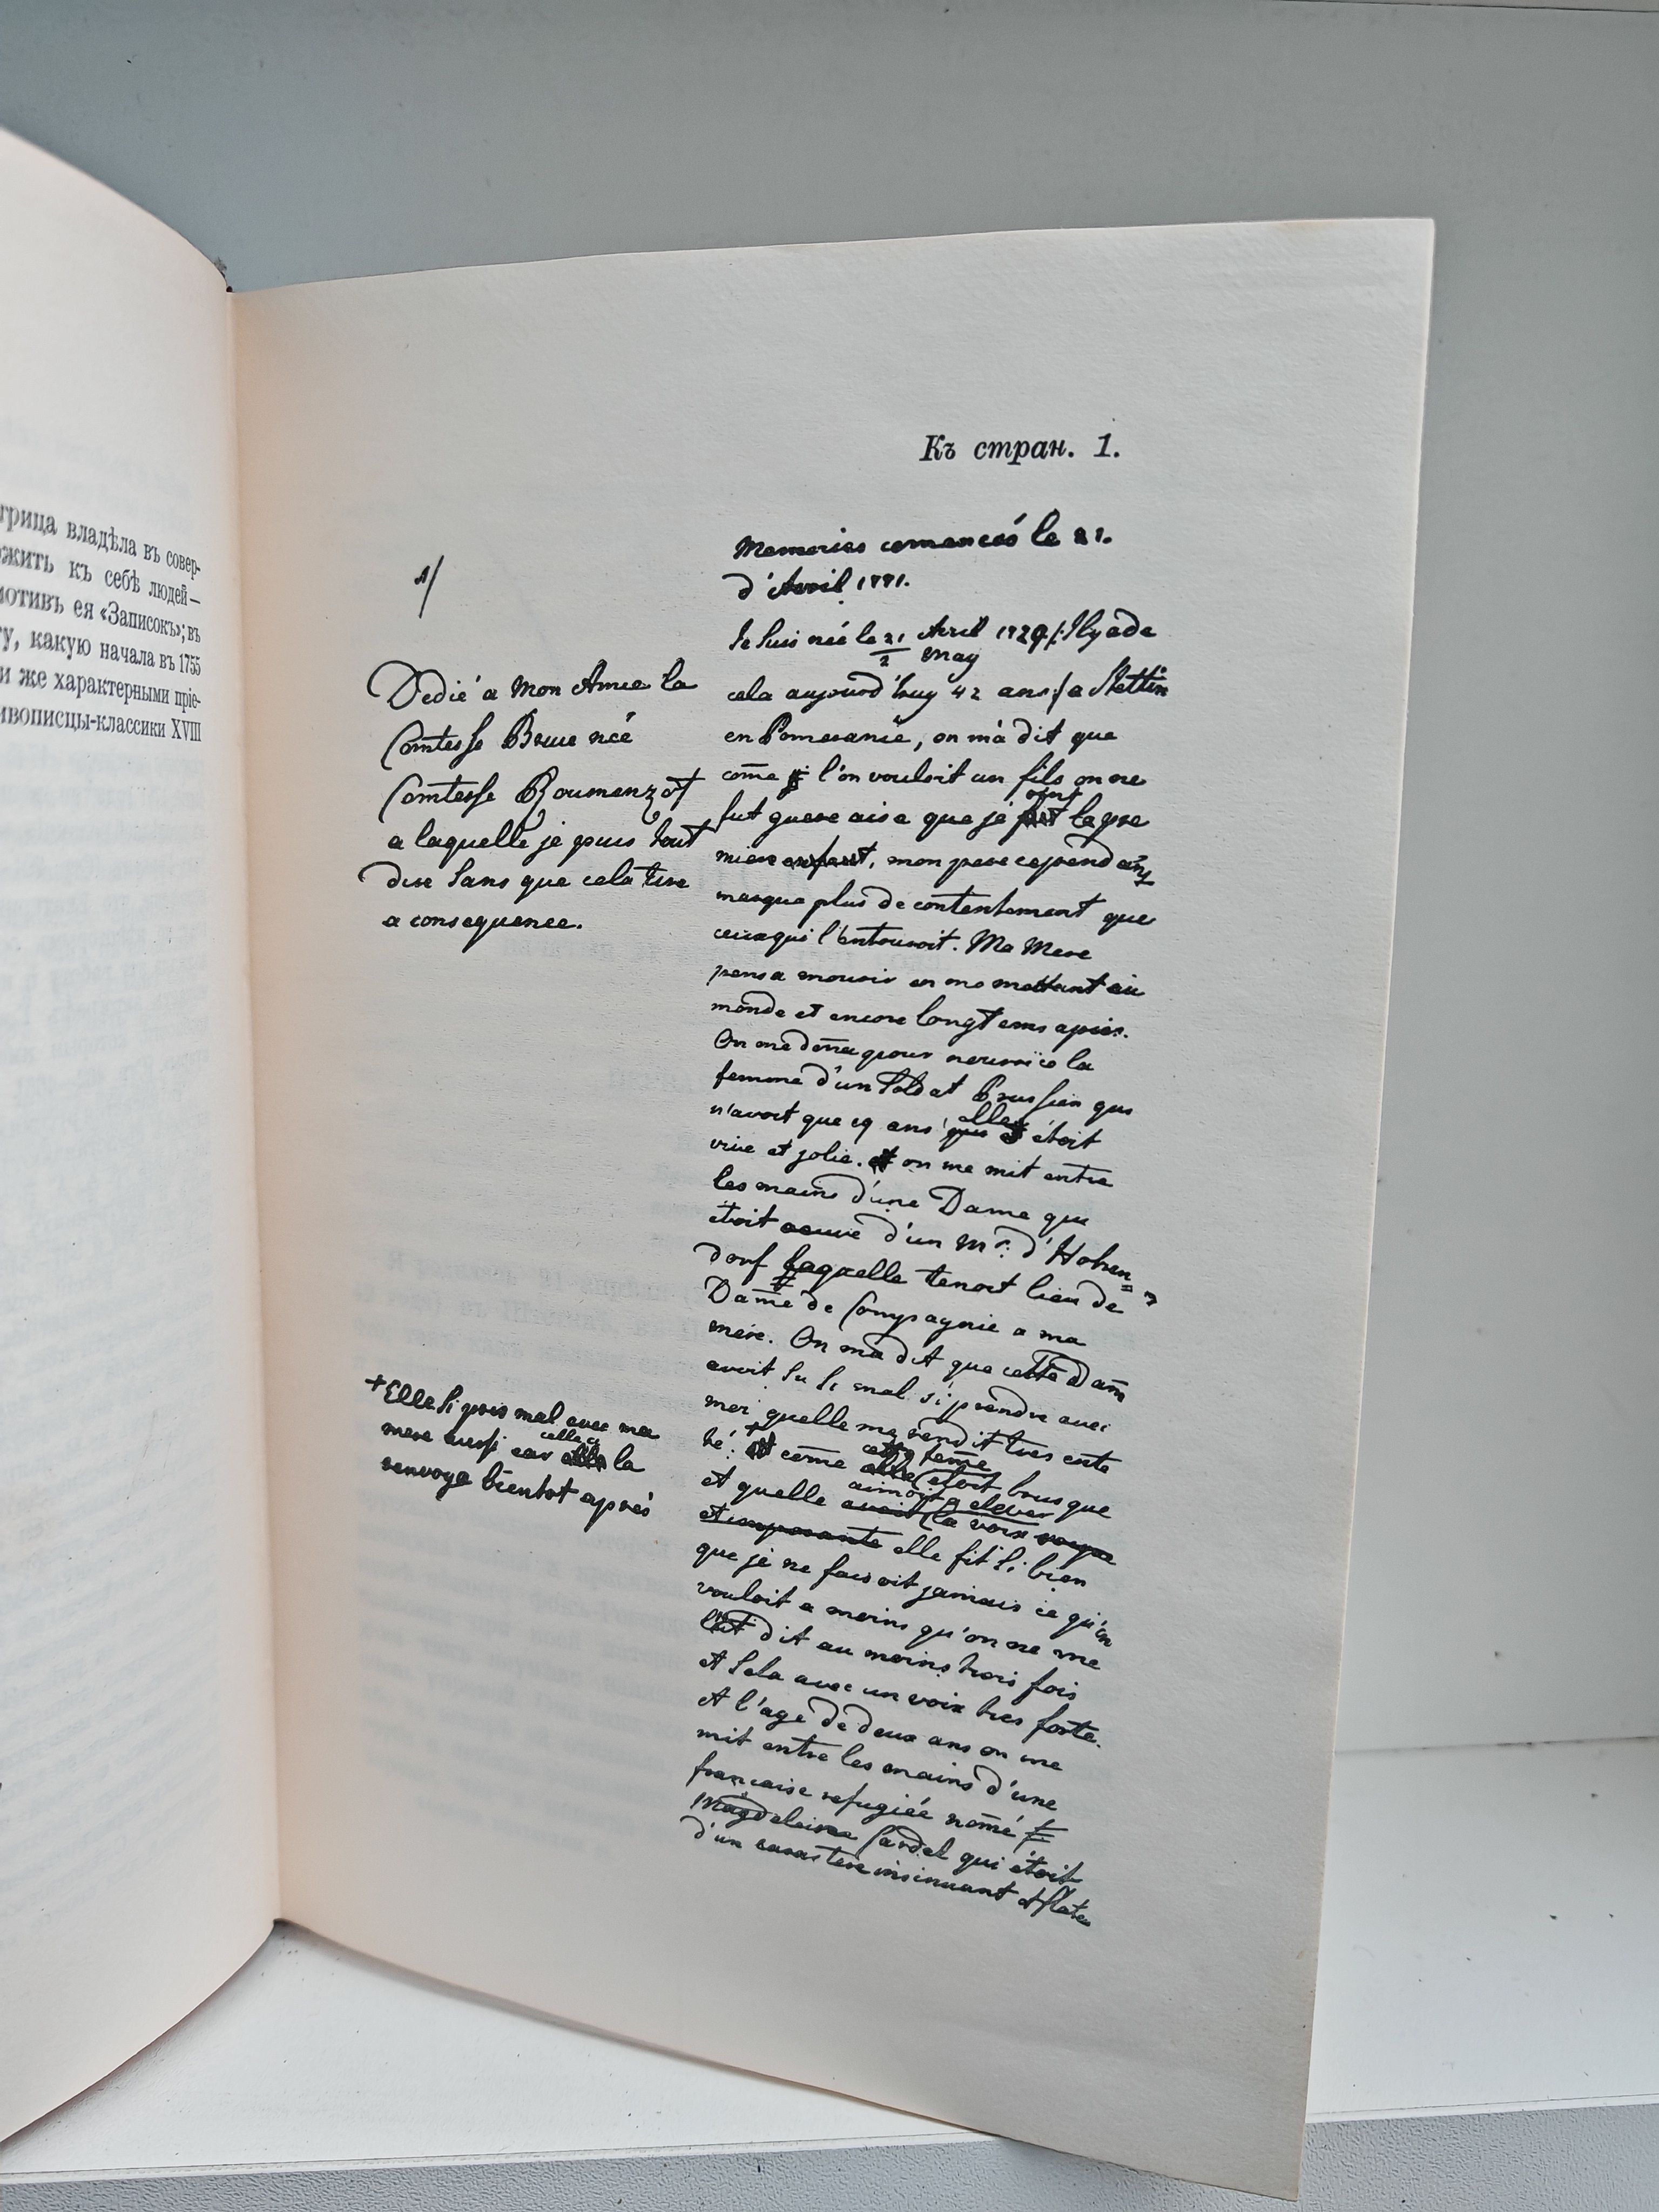 трица владѣла въ совер-
ожить къ себѣ людей—
мотивъ ея «Записокъ»; въ
у, какую начала въ 1755
и же характерными пріе-
ивописцы-классики XVIII
Къ стран. 1.
1/
Dedié a Mon Amie la
Comtesse Bruce née
Comtesse Roumenzof
a laquelle je puis tout
dire sans que cela tire
a consequence.
+Elle si pris mal avec ma
mere aussi car celle ci la
renvoya bientot après
Memoires comencés le 21.
d'Avril 1771.
Je suis née le 21 Avril 1729 /: Il y a de
2 May
cela aujourd'huy 42 ans :/ a Stettin
en Pomeranie, on m'a dit que
come l'on vouloit un fils on ne
fut guere aise que je
la pre
miere enfant, mon pere cependant
marqua plus de contentement que
ceux qui l'entouroit. Ma Mere
pensa mourir en me mettant au
monde et encore longtems après.
On me dona pour nourrice la
femme d'un Soldat Prussien qui
n'avoit que 19 ans elle étoit
vive et jolie. on me mit entre
les mains d'une Dame qui
étoit veuve d'un Mr. d'Hohen=
dorf laquelle tenoit lieu de
Dame de Compagnie a ma
mere. On m'a dit que cette Dame
avoit su si mal s'i prendre avec
moi quelle me rendit tres enté
té. + come cette feme étoit brusque
et quelle aimoit a elever la voix
et imposante elle fit si bien
que je ne faisoit jamais ce qu'on
vouloit a moins qu'on ne me
l'eut dit au moins trois fois
et sela avec un voix tres forte.
A l'age de deux ans on me
mit entre les mains d'une
française refugiée nomé
Magdeleine Cardel qui étoit
d'un caractere insinuant et flateu